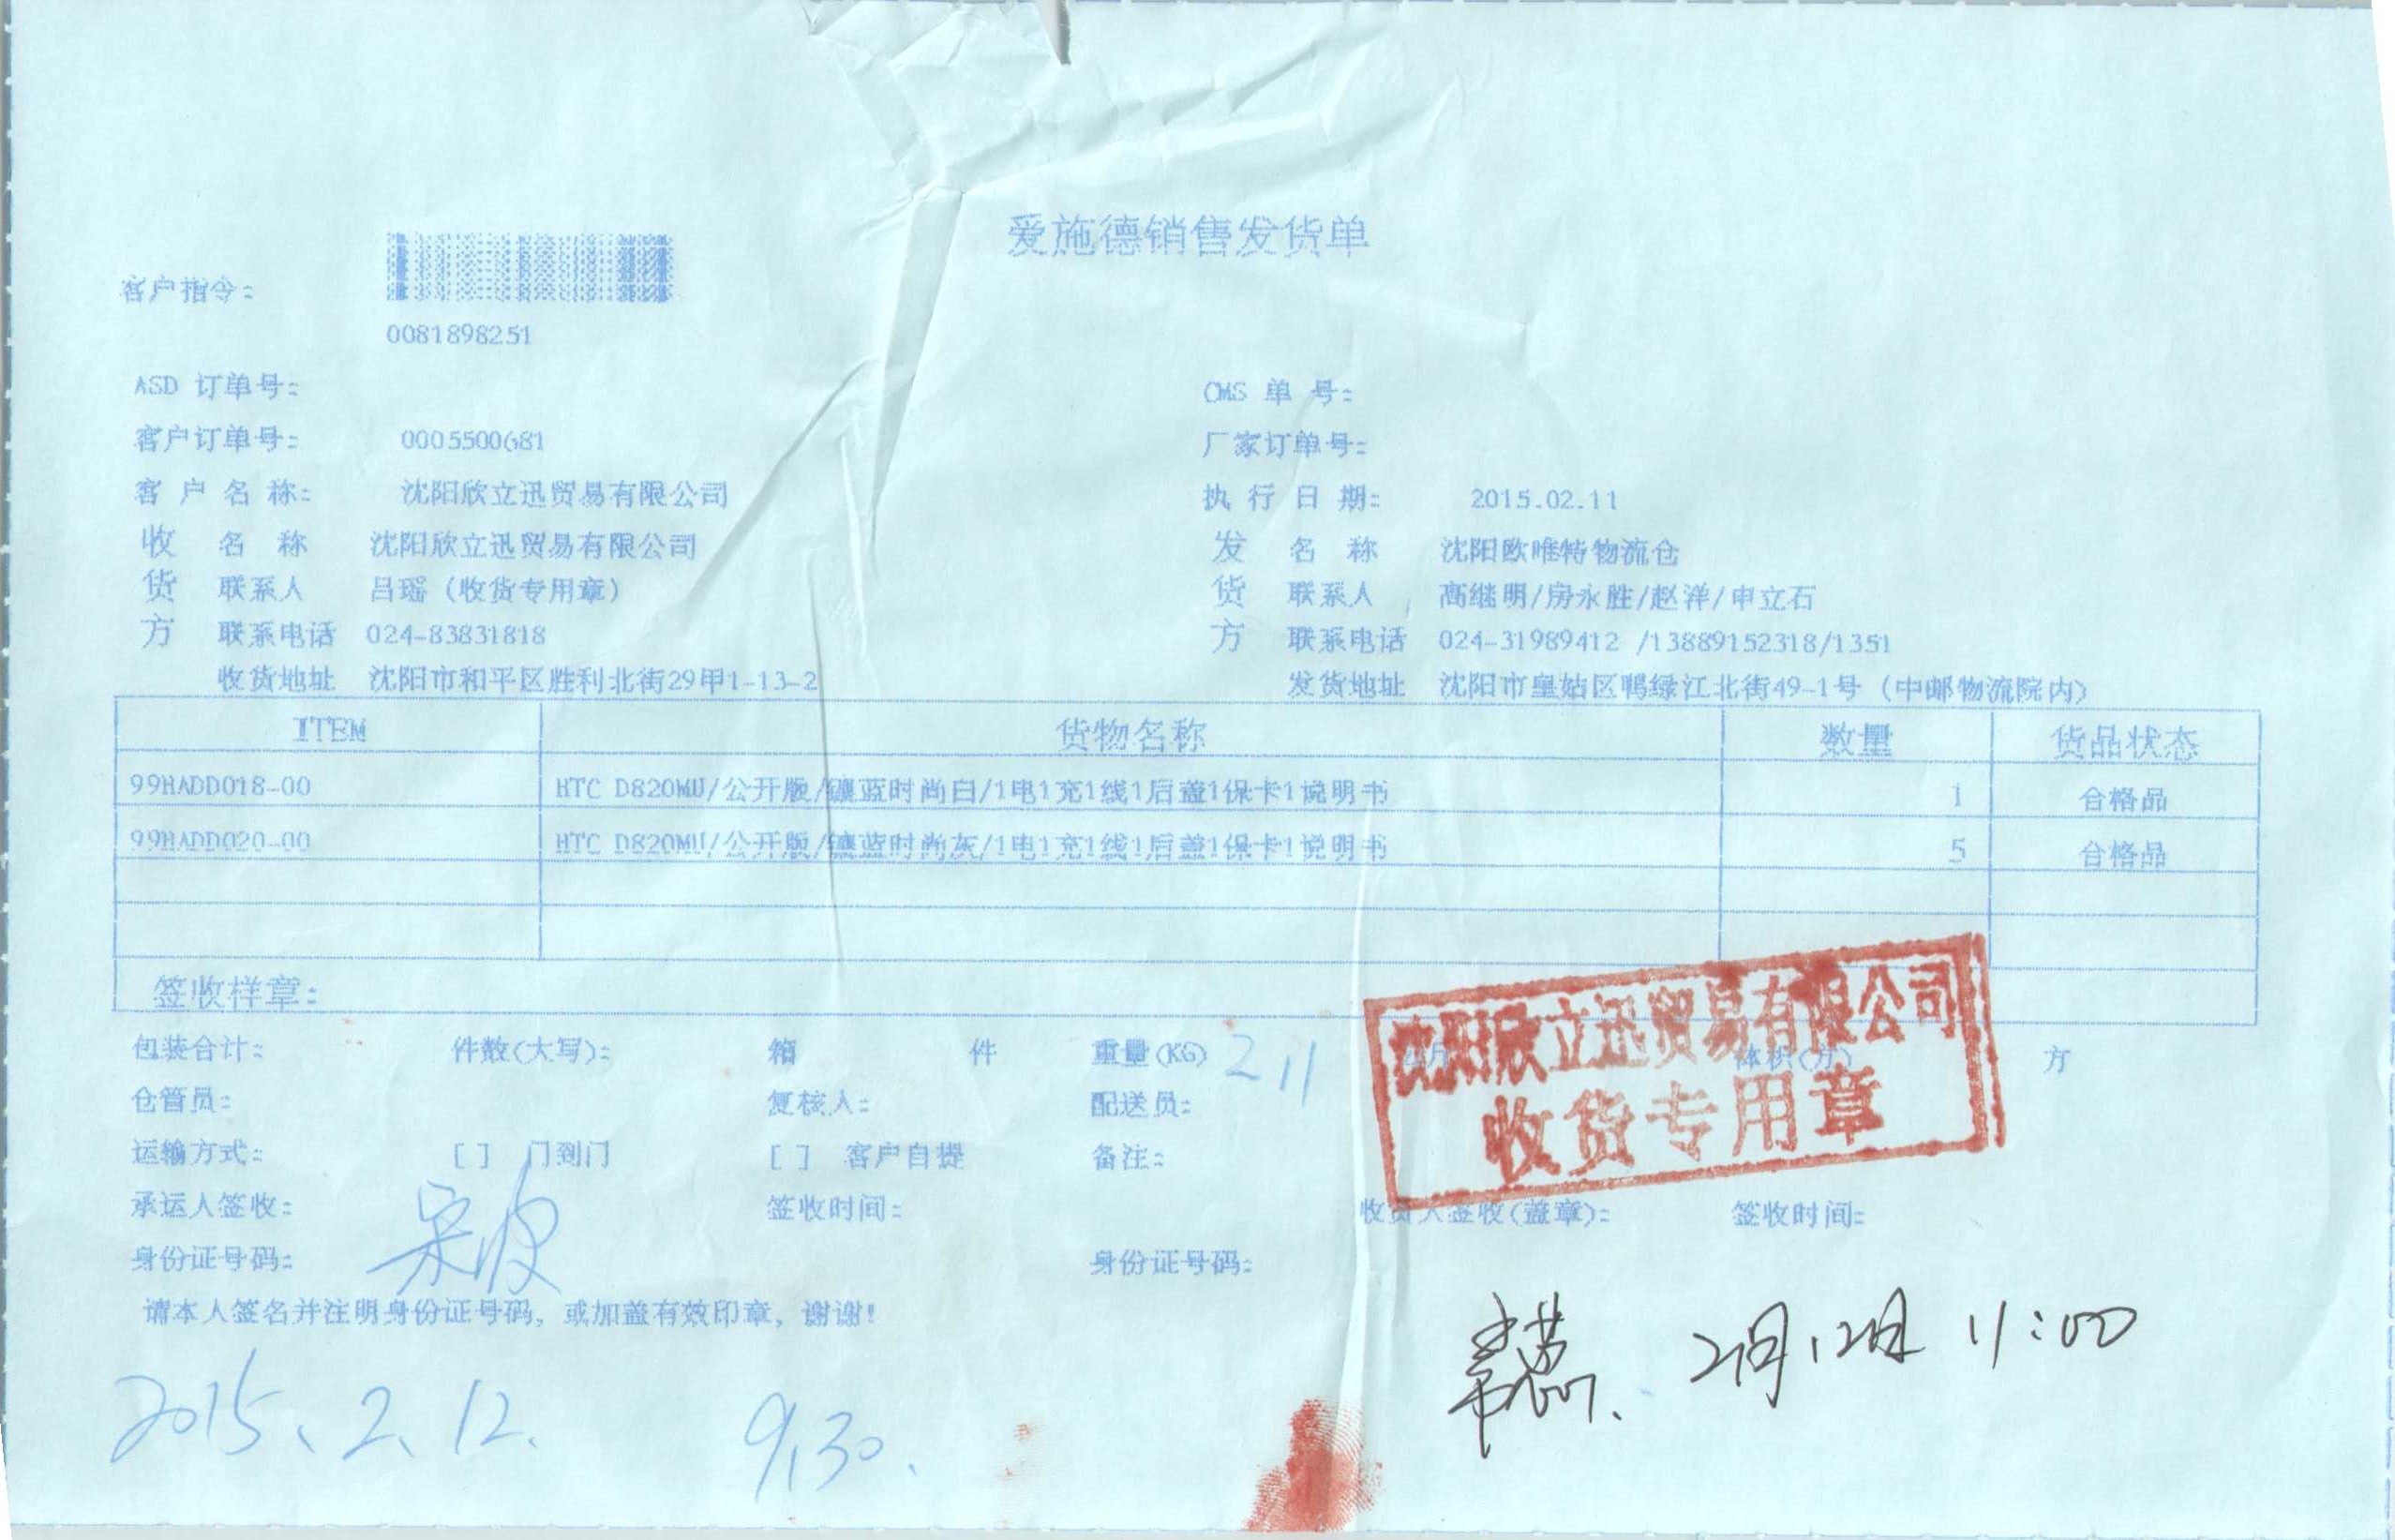 爱施德销售发货单
客户指令：
0081898251
ASD 订单号：
CMS 单 号：
客户订单号： 0005500681
厂家订单号：
客 户 名 称： 沈阳欣立迅贸易有限公司
执 行 日 期： 2015.02.11
收 名 称 沈阳欣立迅贸易有限公司
发 名 称 沈阳欧唯特物流仓
货 联系人 吕瑶（收货专用章）
货 联系人 高继明/房永胜/赵洋/申立石
方 联系电话 024-83831818
方 联系电话 024-31989412 /13889152318/1351
收货地址 沈阳市和平区胜利北街29甲1-13-2
发货地址 沈阳市皇姑区鸭绿江北街49-1号（中邮物流院内）
ITEM 货物名称 数量 货品状态
99HADD018-00 HTC D820MU/公开版/镶蓝时尚白/1电1充1线1后盖1保卡1说明书 1 合格品
99HADD020-00 HTC D820MU/公开版/镶蓝时尚灰/1电1充1线1后盖1保卡1说明书 5 合格品
签收样章：
沈阳欣立迅贸易有限公司
收货专用章
包装合计： 件数(大写)： 箱 件 重量(KG) 2.11 体积(方) 方
仓管员： 复核人： 配送员：
运输方式： [ ] 门到门 [ ] 客户自提 备注：
承运人签收： 签收时间： 收货人签收(盖章)： 签收时间：
身份证号码： 身份证号码：
请本人签名并注明身份证号码，或加盖有效印章，谢谢！
2月12日 11:00
2015、2、12. 9:30.